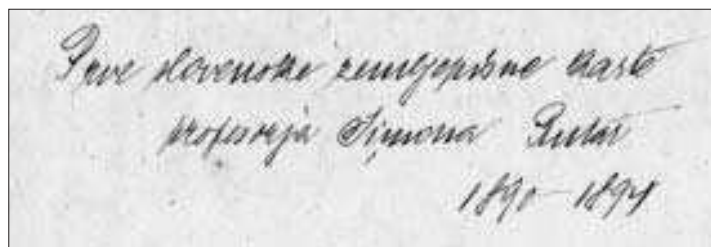 Prve slovenske zemljepisne karte
profesorja Simona Rutar
1890–1894